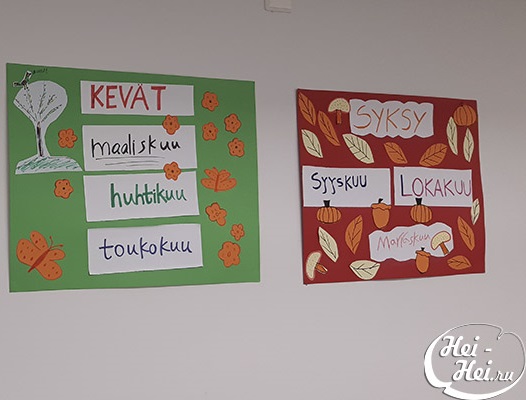 KEVÄT
maaliskuu
huhtikuu
toukokuu
SYKSY
Syyskuu
LOKAKUU
Marraskuu
Hei-
Hei.ru